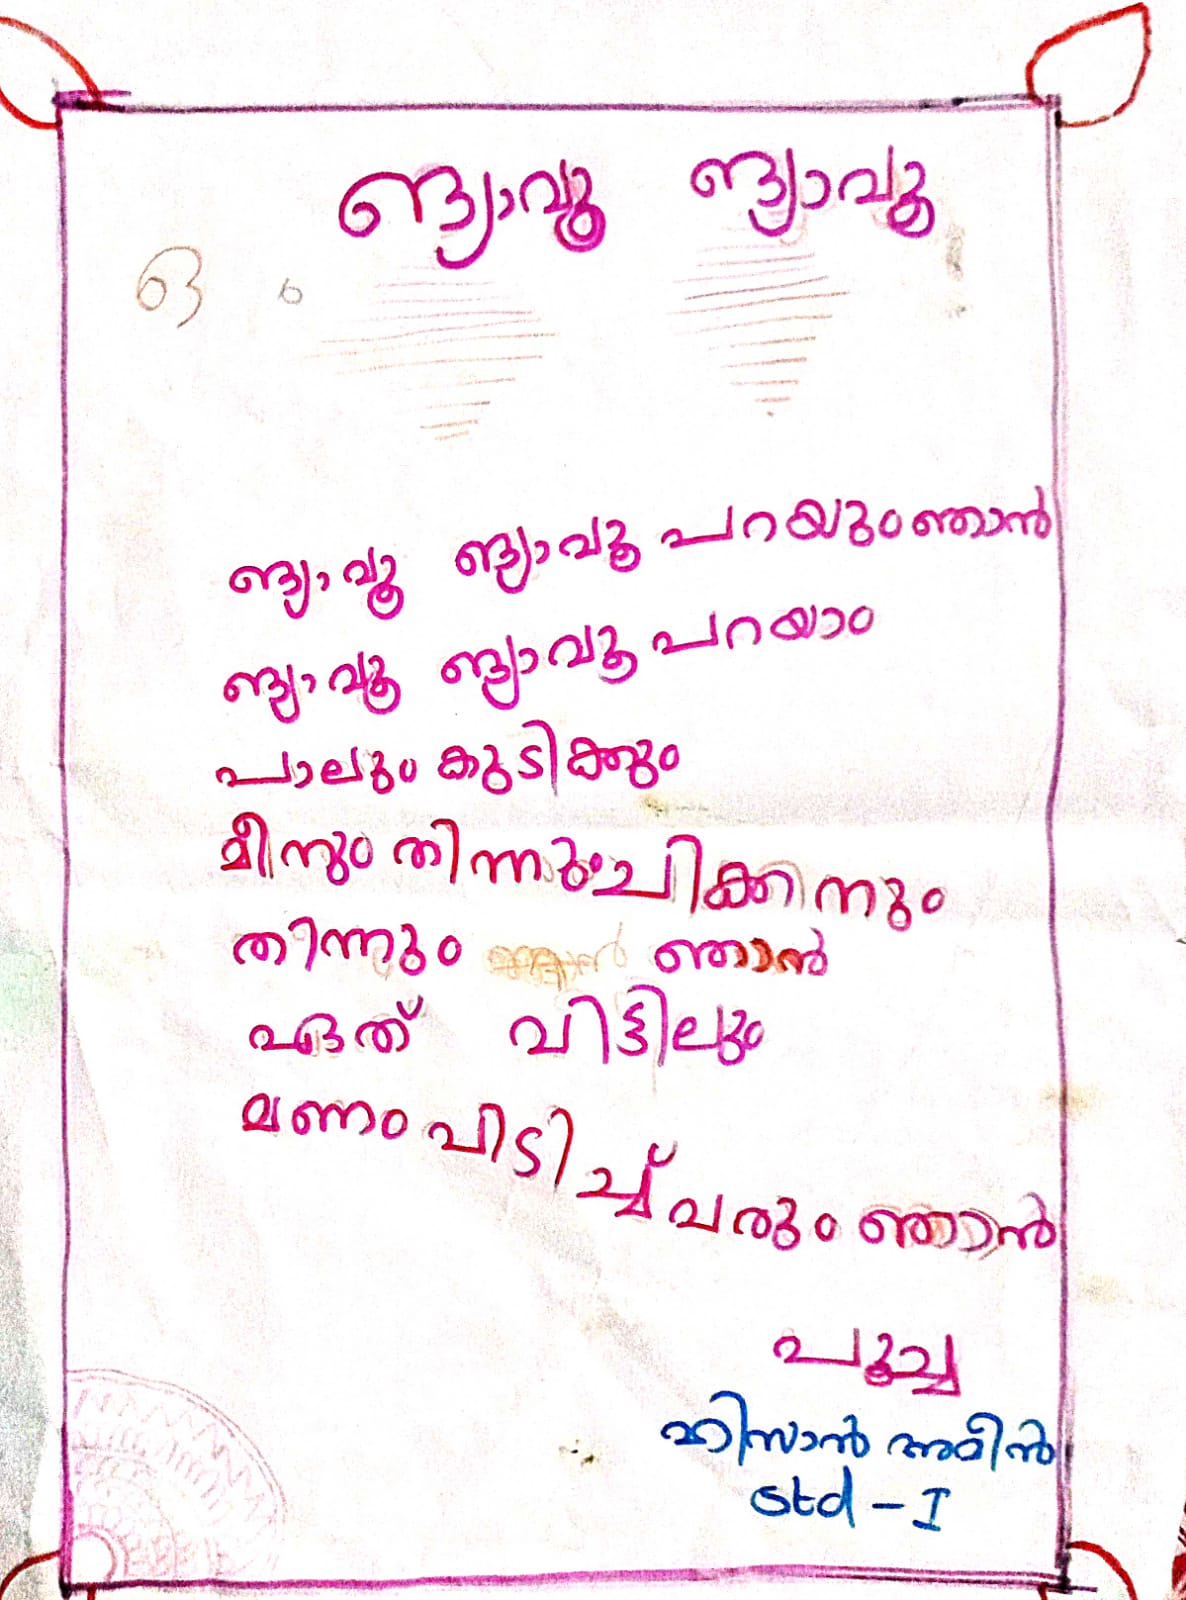 ങ്യാവൂ ങ്യാവൂ
ങ്യാവൂ ങ്യാവൂ പറയും ഞാൻ
ങ്യാവൂ ങ്യാവൂ പറയാം
പാലും കുടിക്കും
മീനും തിന്നും ചിക്കിനും
തിന്നും ഞാൻ
ഏത് വീട്ടിലും
മണം പിടിച്ച് വരും ഞാൻ
പൂച്ച
ഹിസാൻ അമീൻ
std - I